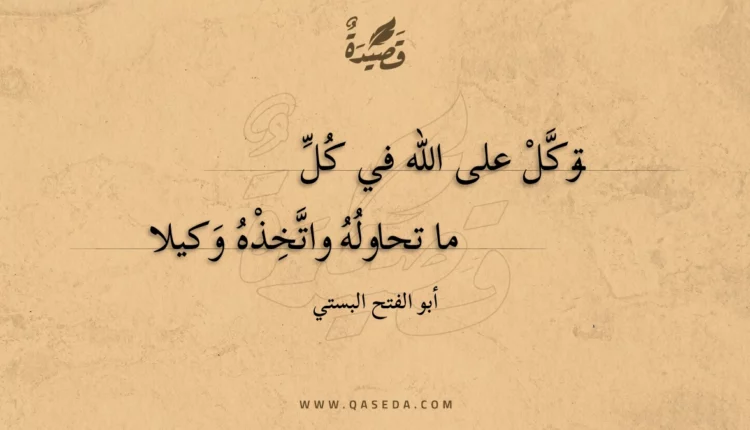 قَصِيدَةٌ
توَكَّلْ على الله في كُلِّ
ما تحاولُهُ واتَّخِذْهُ وَكيلا
أبو الفتح البستي
WWW.QASEDA.COM